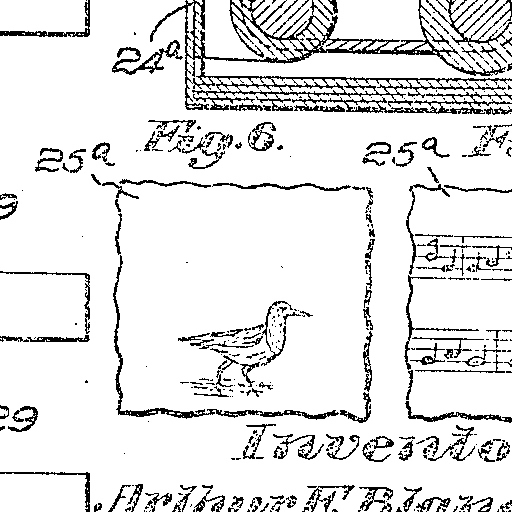 24a
Fig. 6.
25a
25a
9
29
Invento
Arthur F. Blan